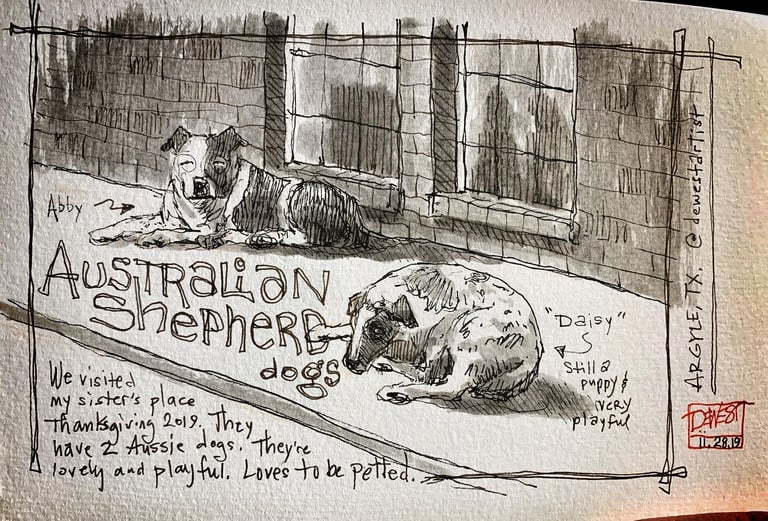 Abby
AUSTRALIAN
SHEPHERD
dogs
"Daisy"
Still a
puppy &
very
playful
We visited
my sister's place
Thanksgiving 2019. They
have 2 Aussie dogs. They're
lovely and playful. Loves to be petted.
ARGYLE, TX. @dewestartist
DEWEST
11.28.19